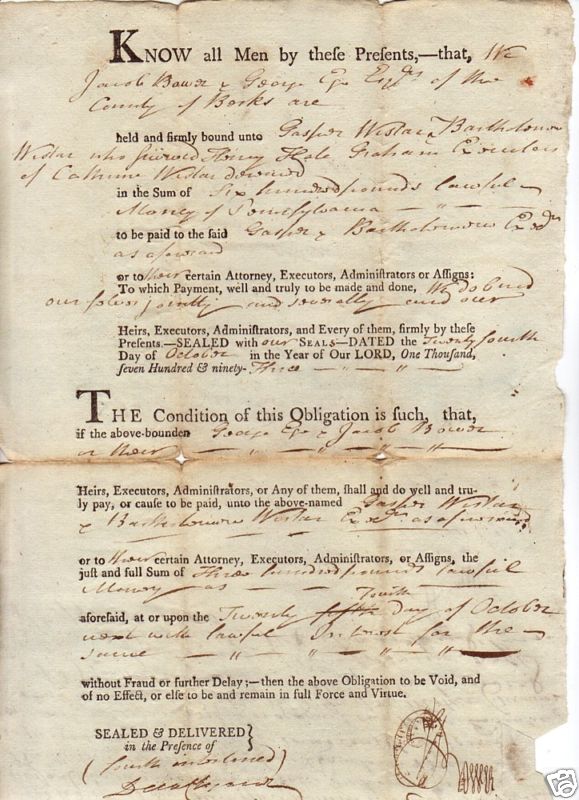 KNOW all Men by theſe Preſents,—that, We
Jacob Bower & George Ege Esqrs of the
County of Berks are
held and firmly bound unto Gasper Wistar & Bartholomew
Wistar who survived Henry Hale Graham Executors
of Catherine Wistar deceased
in the Sum of Six hundred pounds lawful
Money of Pennsylvania — " — " —
to be paid to the said Gasper & Bartholomew Exors
as aforesaid
or to their certain Attorney, Executors, Adminiſtrators or Aſſigns:
To which Payment, well and truly to be made and done, We do bind
our selves jointly and severally and our
Heirs, Executors, Adminiſtrators, and Every of them, firmly by theſe
Preſents.—SEALED with our SEALS—DATED the Twenty fourth
Day of October in the Year of Our LORD, One Thouſand,
ſeven Hundred & ninety-Three — " — " —
THE Condition of this Obligation is ſuch, that,
if the above-bounden George Ege & Jacob Bower
or their — " — " — " — " —
Heirs, Executors, Adminiſtrators, or Any of them, ſhall and do well and tru-
ly pay, or cauſe to be paid, unto the above-named Gasper Wistar
& Bartholomew Wistar Exors as aforesaid
or to their certain Attorney, Executors, Adminiſtrators, or Aſſigns, the
juſt and full Sum of Three hundred pounds lawful
Money as —
Fourth
aforeſaid, at or upon the Twenty fifth day of October
next with lawful Interest for the
same — " — " — " — " —
without Fraud or further Delay;—then the above Obligation to be Void, and
of no Effect, or elſe to be and remain in full Force and Virtue.
SEALED & DELIVERED
in the Preſence of
(fourth interlined)